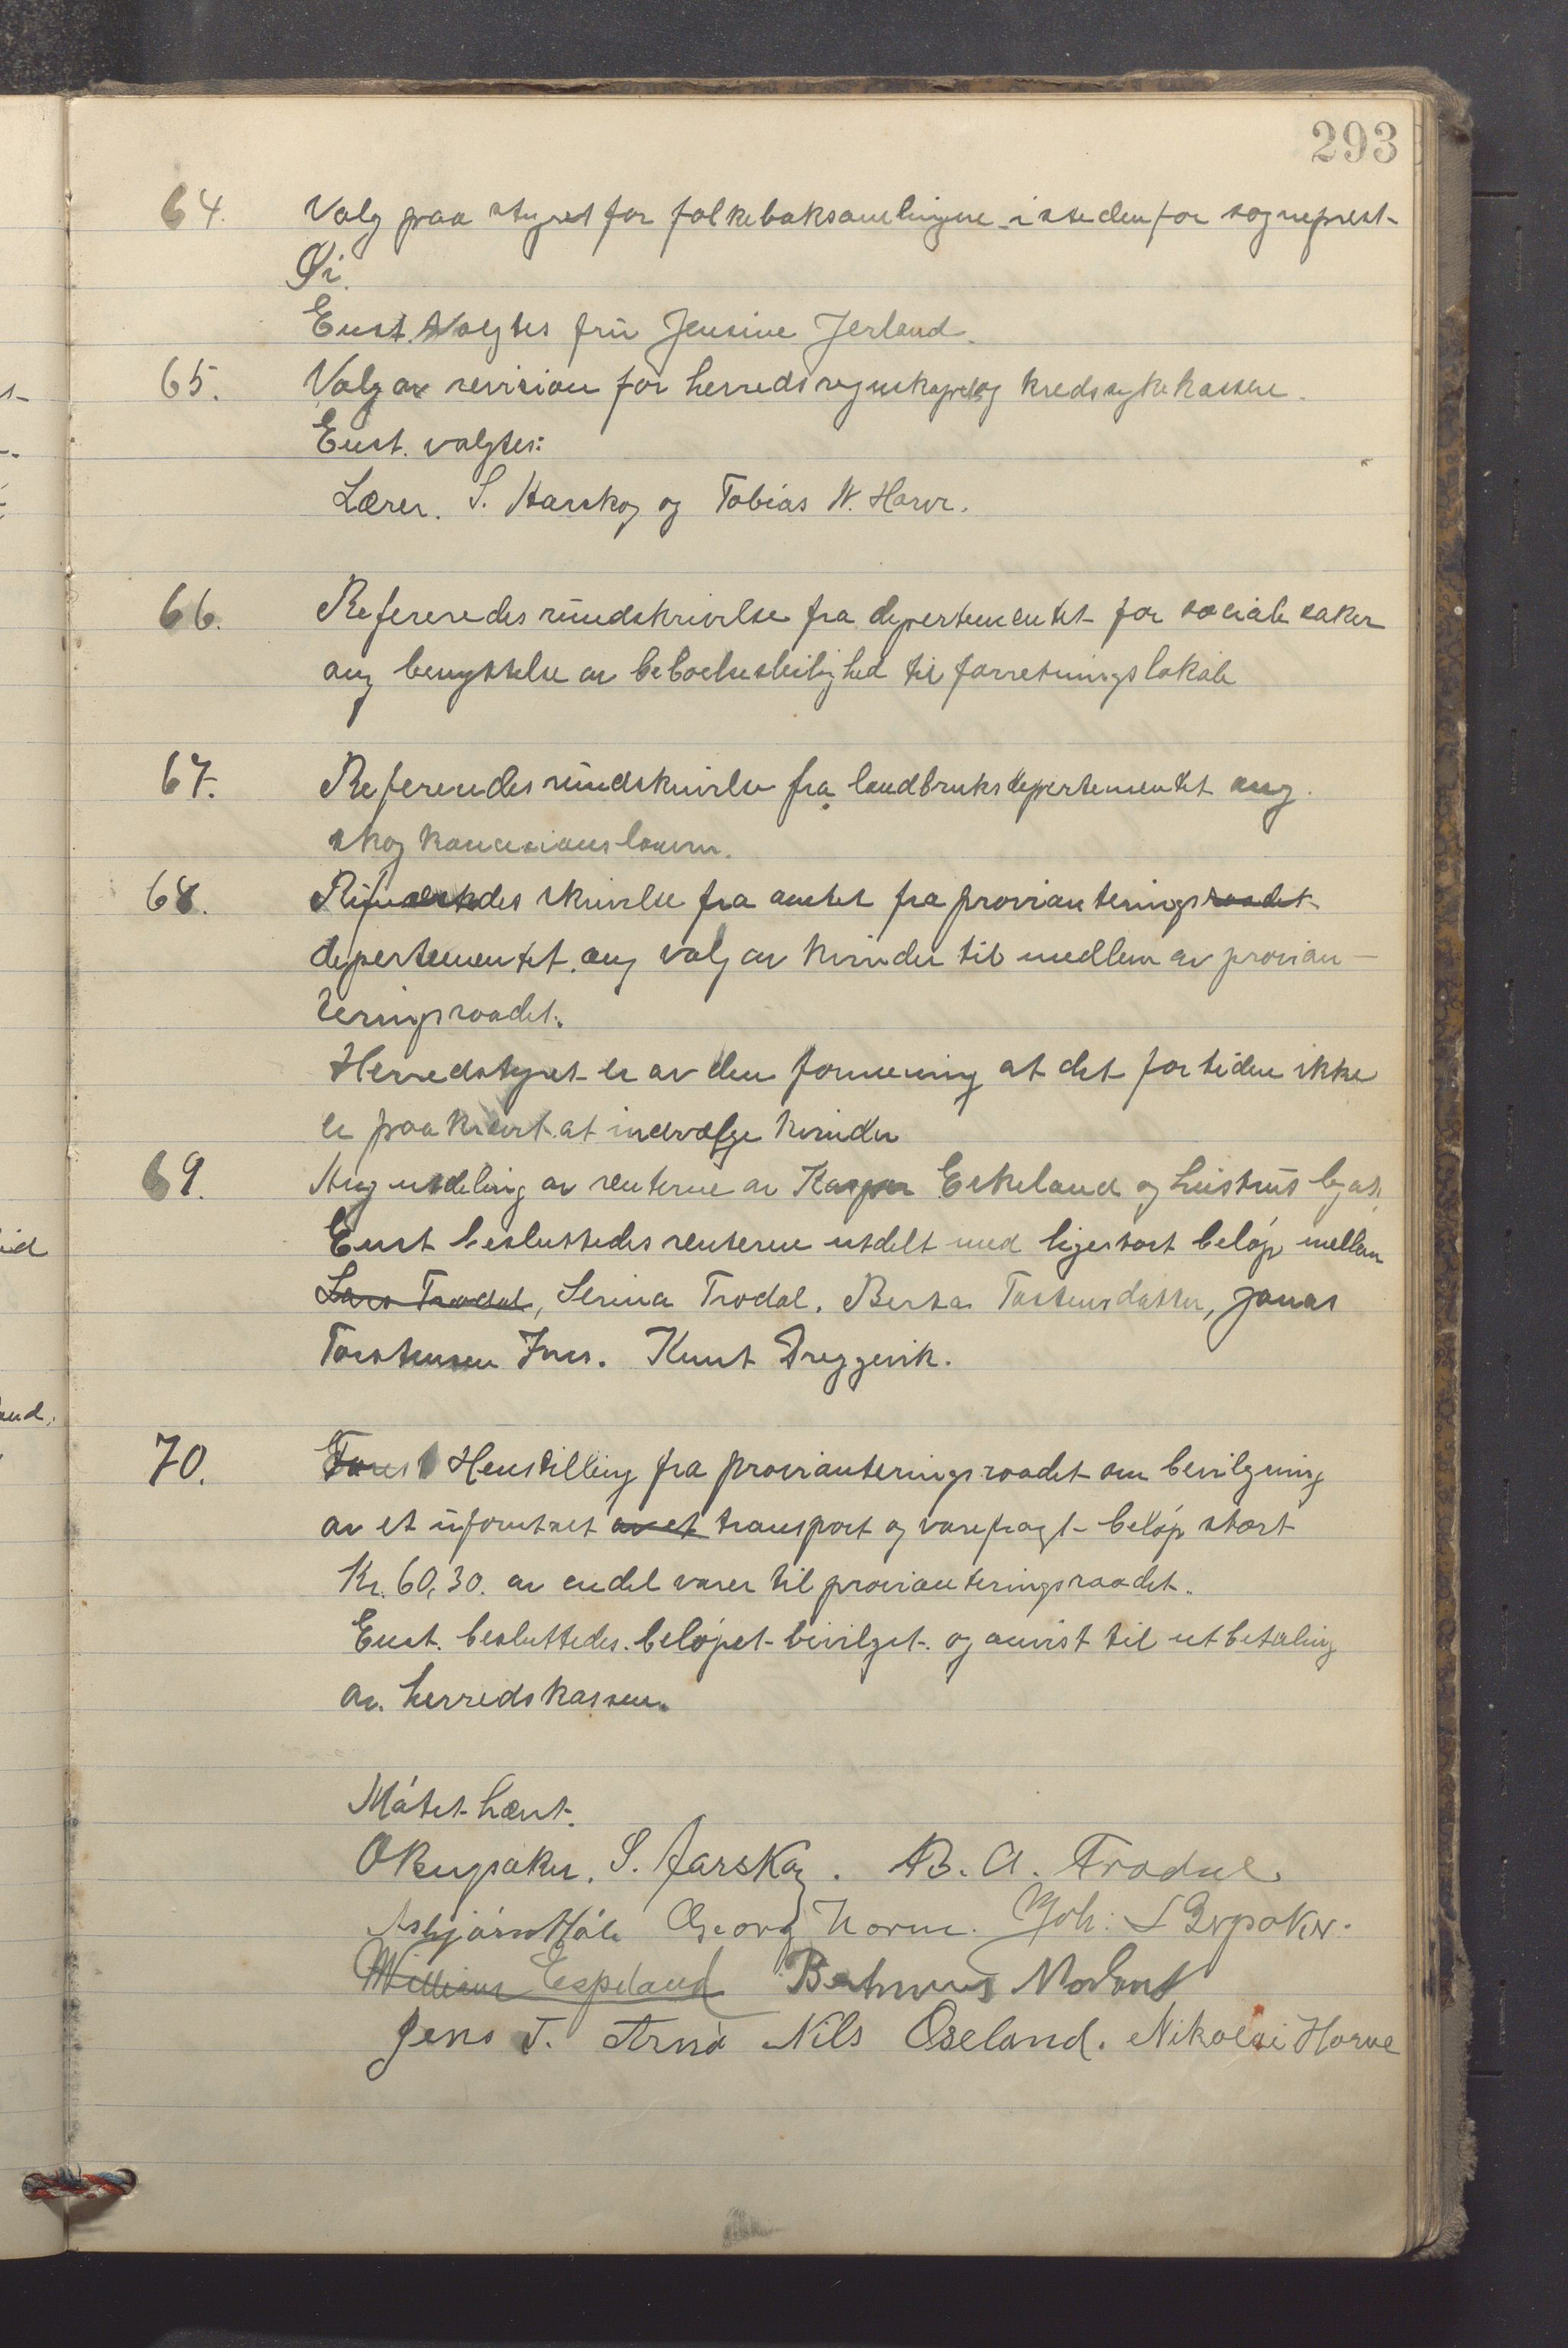 293
64. Valg paa styret for folkeboksamlingene istedenfor sogneprest
Øi.
Enst. valgtes frü Jensine Jerland.
65. Valg av revision for herredsregnskapet og kredssykekassene.
Enst. valgtes:
Lærer. S. Harskog og Tobias N. Horve.
66. Refereredes ründskrivelse fra departementet for sociale saker
ang benyttelse av beboelsesleilighed til forretningslokale
67. Refereredes ründskrivelse fra landbruksdepartementet ang.
skogkoncesionsloven.
68. Refereredes skrivelse fra amtet fra provianteringsraadet
departementet. ang valg av kvinder til medlem av provian-
teringsraadet.
Herredstyret er av den formening at det for tiden ikke
er paakrævet at indvælge kvinder
69. Ang utdeling av renterne av Kasper Eskeland og hüstrüs legat.
Enst besluttedes renterne utdelt med ligestort beløp mellem
Lars Trodal, Serina Trodal. Berta Tostensdatter, Jonas
Torstensen Ims. Knut Dreggevik.
70. Henstilling fra provianteringsraadet om bevilgning
av et üforutset av et transport og varefragt-beløp stort
Kr. 60,30. av endel varer til provianteringsraadet.
Enst. besluttedes beløpet bevilget og anvist til utbetaling
av herredskassen.
Møtet hævet.
S. Aarskog. B. A. Trodal.
Asbjørn Georg Horve. Joh. S
William Espeland
Jens T. Nils Oseland. Nikolai Horve